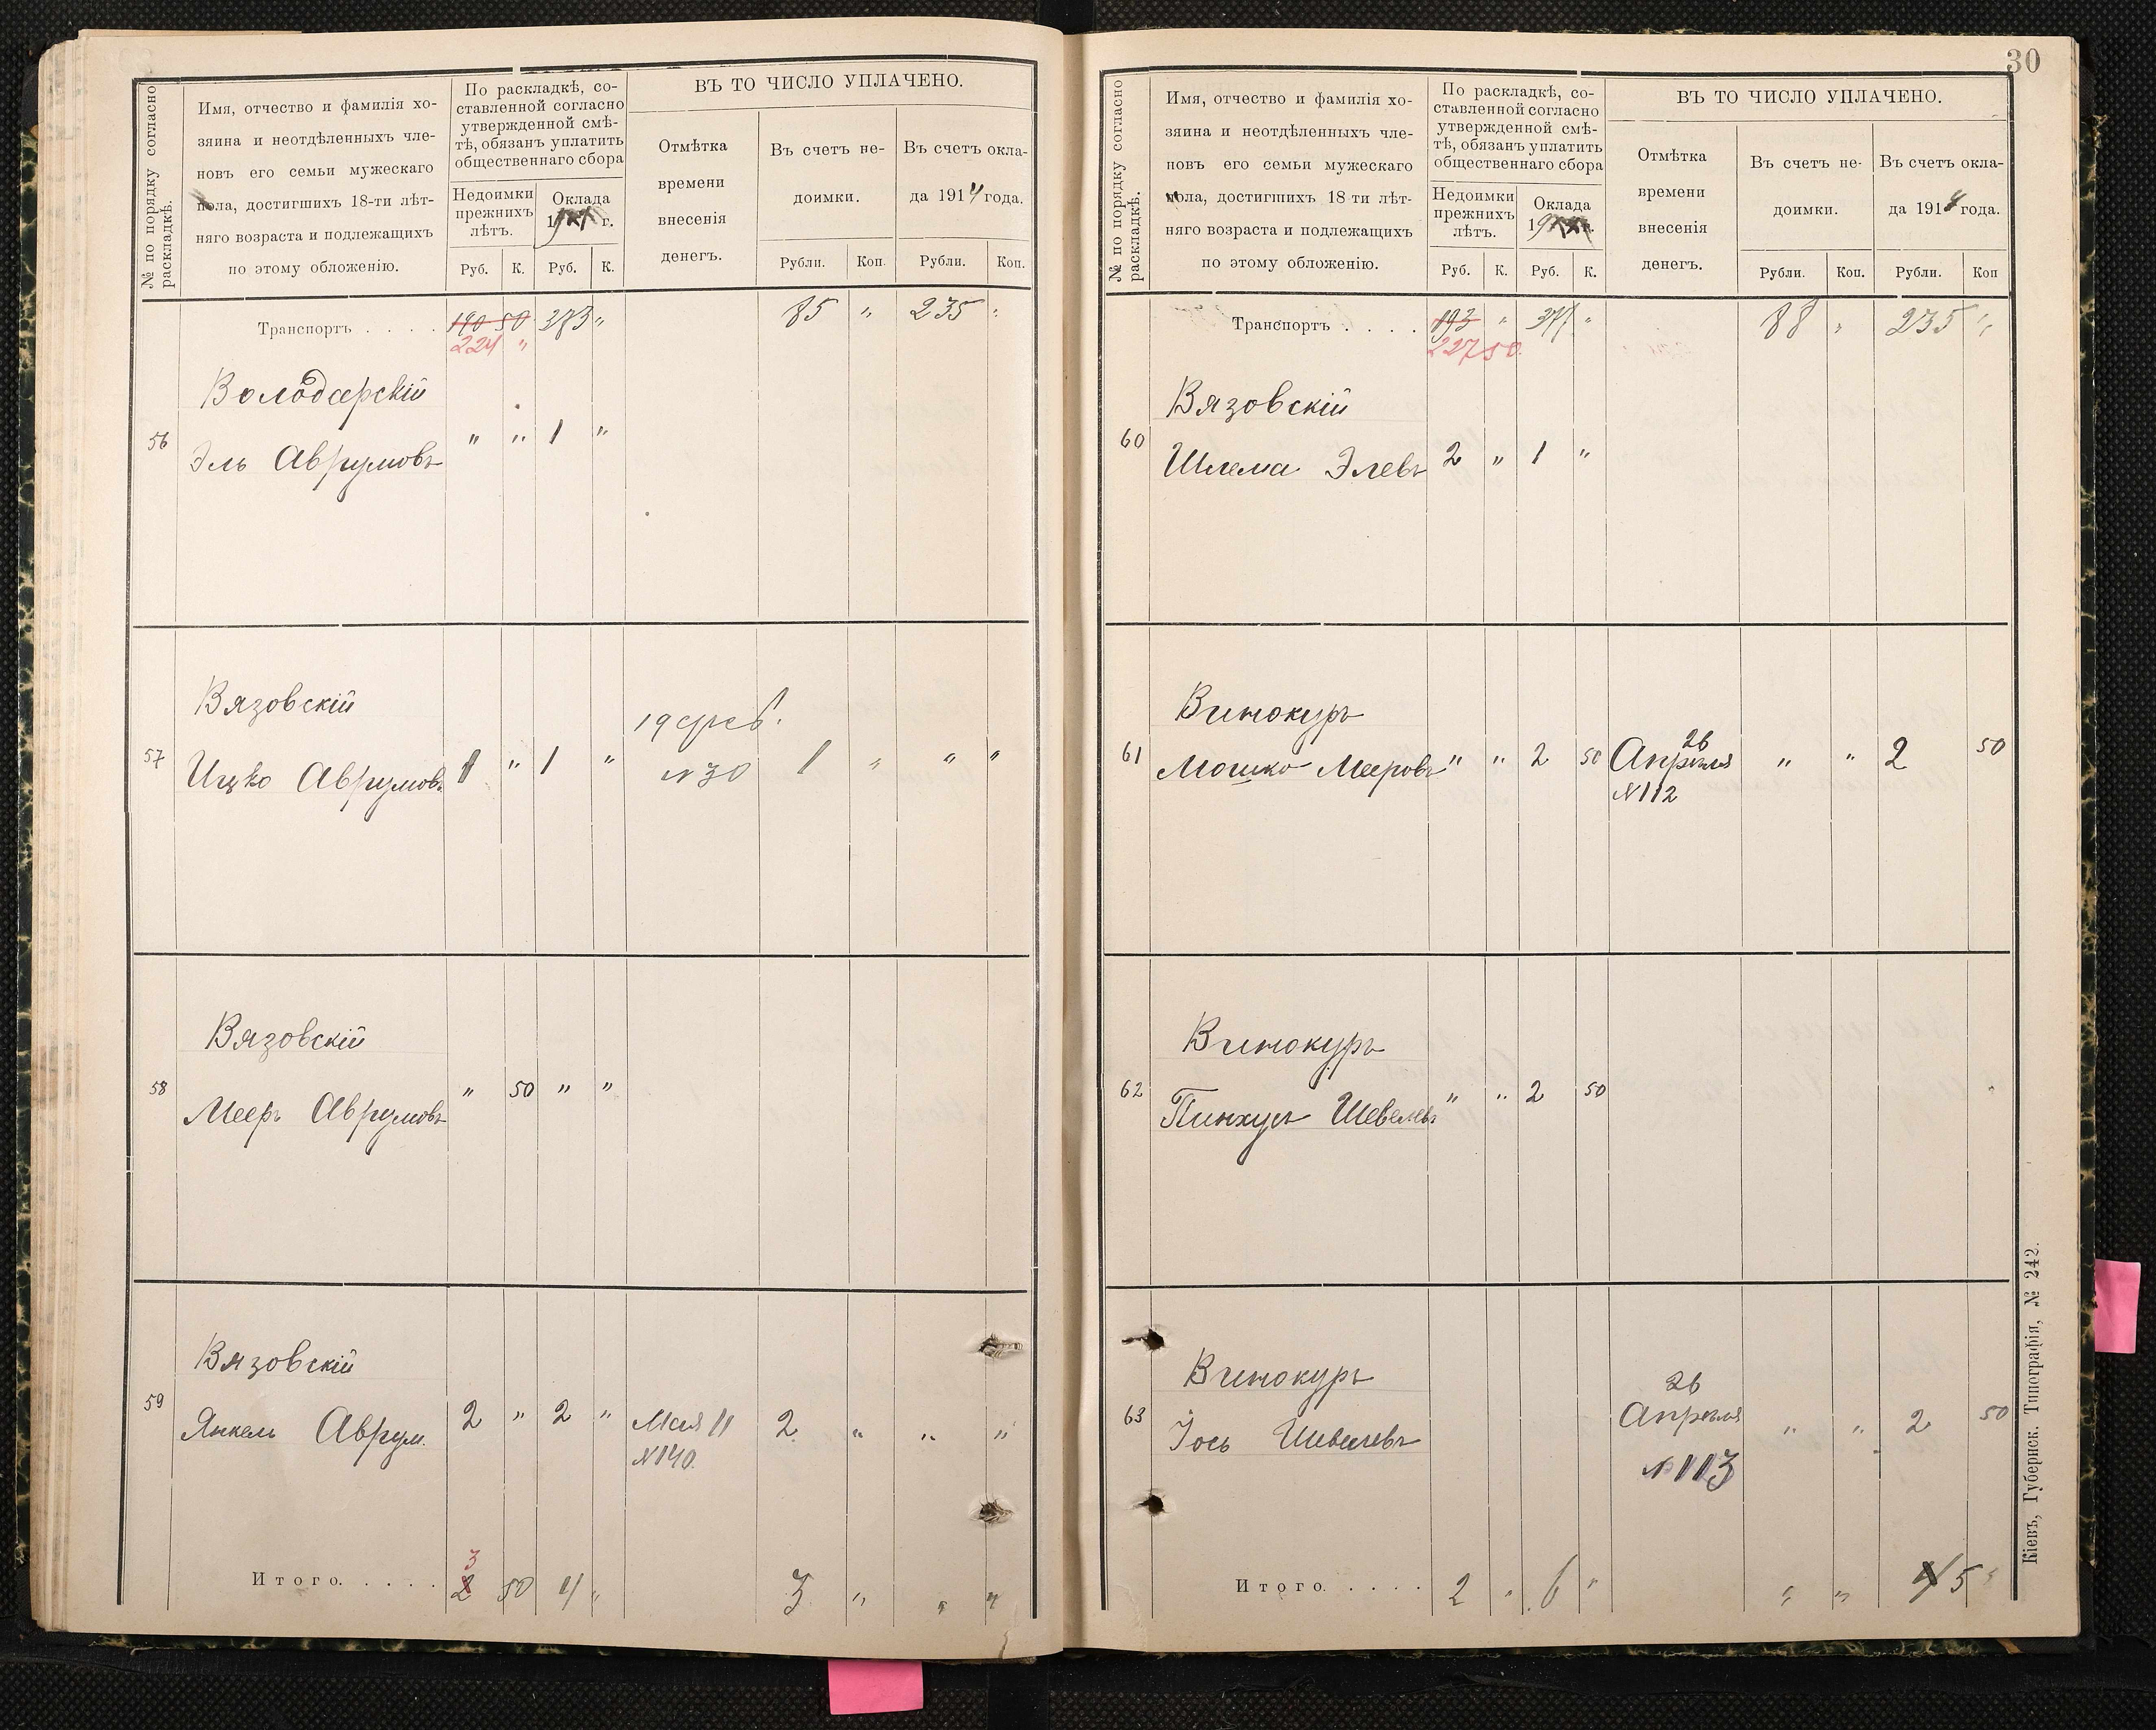 № по порядку согласно раскладкѣ.
Имя, отчество и фамилія хо-
зяина и неотдѣленныхъ чле-
новъ его семьи мужескаго
пола, достигшихъ 18-ти лѣт-
няго возраста и подлежащихъ
по этому обложенію.
По раскладкѣ, со-
ставленной согласно
утвержденной смѣ-
тѣ, обязанъ уплатить
общественнаго сбора
Недоимки
прежнихъ
лѣтъ.
Оклада
г.
Руб. К. Руб. К.
ВЪ ТО ЧИСЛО УПЛАЧЕНО.
Отмѣтка
времени
внесенія
денегъ.
Въ счетъ не-
доимки.
Въ счетъ окла-
да 1914 года.
Рубли. Коп. Рубли. Коп.
Транспортъ . . . . 190 50 373 " 85 " 235 "
224 "
Володарскій
56 Эль Аврумовъ " " 1 "
Вязовскій
19 фев.
57 Ицко Аврумовъ 1 " 1 " N 30 1 " " "
Вязовскій
58 Мееръ Аврумовъ " 50 " "
Вязовскій
59 Янкель Аврум. 2 " 2 " Мая 11 2 " " "
N 140.
3
Итого. . . . . 2 50 4 " 3 " " "
30
№ по порядку согласно раскладкѣ.
Имя, отчество и фамилія хо-
зяина и неотдѣленныхъ чле-
новъ его семьи мужескаго
пола, достигшихъ 18 ти лѣт-
няго возраста и подлежащихъ
по этому обложенію.
По раскладкѣ, со-
ставленной согласно
утвержденной смѣ-
тѣ, обязанъ уплатить
общественнаго сбора
Недоимки
прежнихъ
лѣтъ.
Оклада
Руб. К. Руб. К.
ВЪ ТО ЧИСЛО УПЛАЧЕНО.
Отмѣтка
времени
внесенія
денегъ.
Въ счетъ не-
доимки.
Въ счетъ окла-
да 1914 года.
Рубли. Коп. Рубли. Коп
Транспортъ . . . . 193 " 377 " 88 " 235 "
227 50
Вязовскій
60 Шлема Элевъ 2 " 1 "
Винокуръ
26
61 Мошко Мееровъ " " 2 50 Апрѣля " " 2 50
N 112
Винокуръ
62 Пинхусъ Шевелевъ " " 2 50
Винокуръ
26
63 Іось Шевелевъ Апрѣля " " 2 50
N 113
Итого. . . . . 2 " 6 " " " 4 5 "
Кіевъ, Губернск. Типографія, № 242.